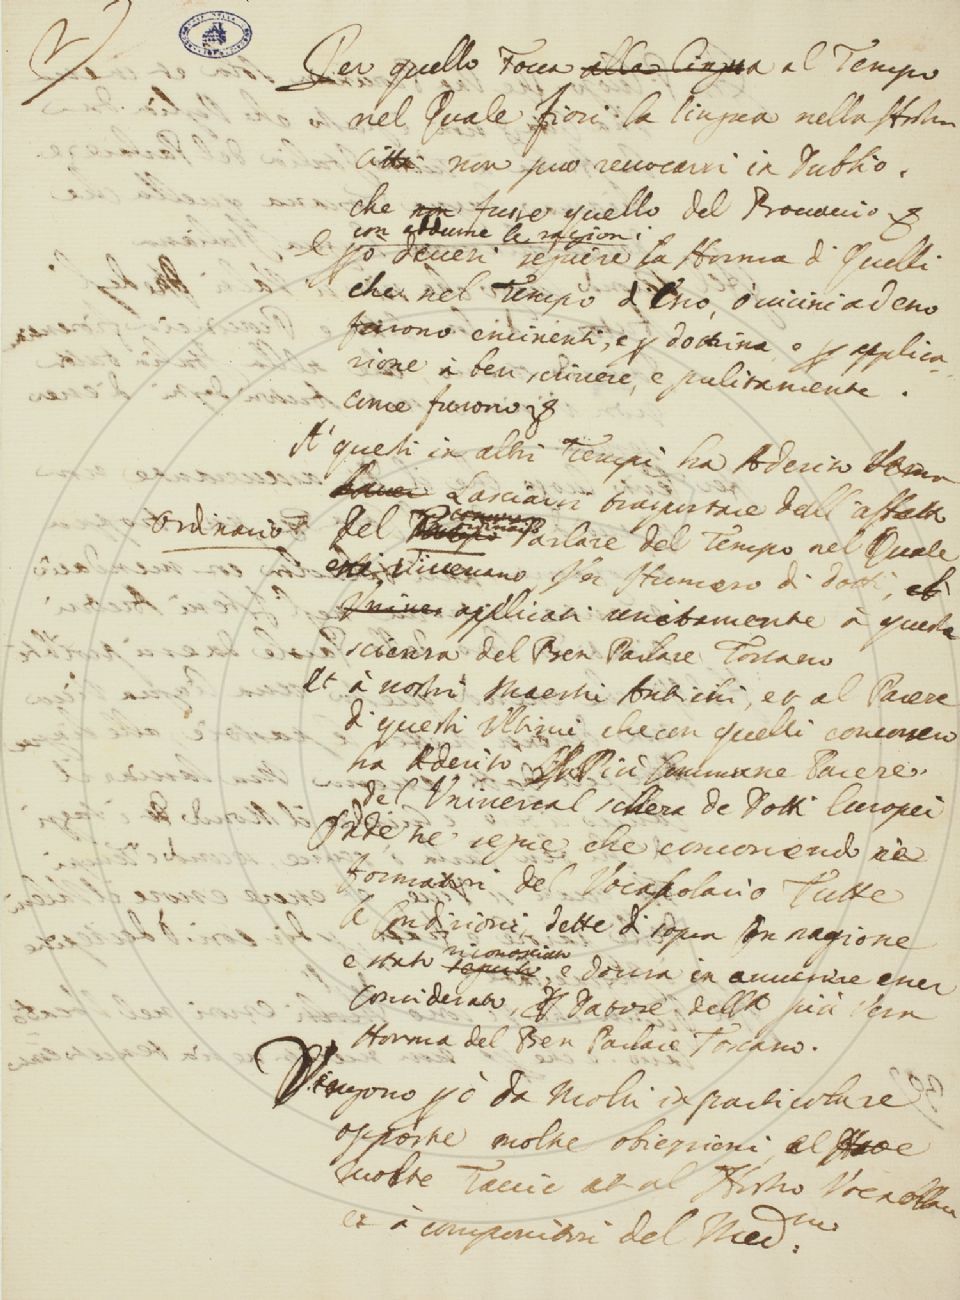 Per quello Tocca alla lingua al Tempo
nel Quale fiorì la lingua nella Nostra
città non può revocarsi in Dubbio.
che non fusse quello del Boccaccio
con addurne le ragioni
e doversi seguire la Norma di Quelli
che nel Tempo d'Esso, ò vicini ad esso
furono eminenti, e p dottrina, e p applica-
zione à ben scrivere, e pulitamente.
come furono
A' questi in altri Tempi ha Aderito
haver Lasciarsi trasportare dall'affetto
ordinario
del Parlare del Tempo nel Quale
vivevano Per Numero di dotti, et
applicati unitamente à questa
scienza del Ben Parlare Toscano
Et à nostri Maestri Antichi, et al Parere
di questi Ultimi che con quelli concorsero
ha Aderito Il Più Commune Parere
del Universal schiera de Dotti Europei
Onde ne segue che concorrendo ne
formatori del Vocabolario Tutte
le Condizioni dette di sopra Con ragione
è stato riconosciuto seguito, e dovrà in avvenire esser
Considerato, Il Datore della più Vera
Norma del Ben Parlare Toscano.
Vengono pò da Molti in particolare
opposte molte obiezioni, e
Molte Taccie at al Nostro Vocabolario
et à compositori del Med.mo